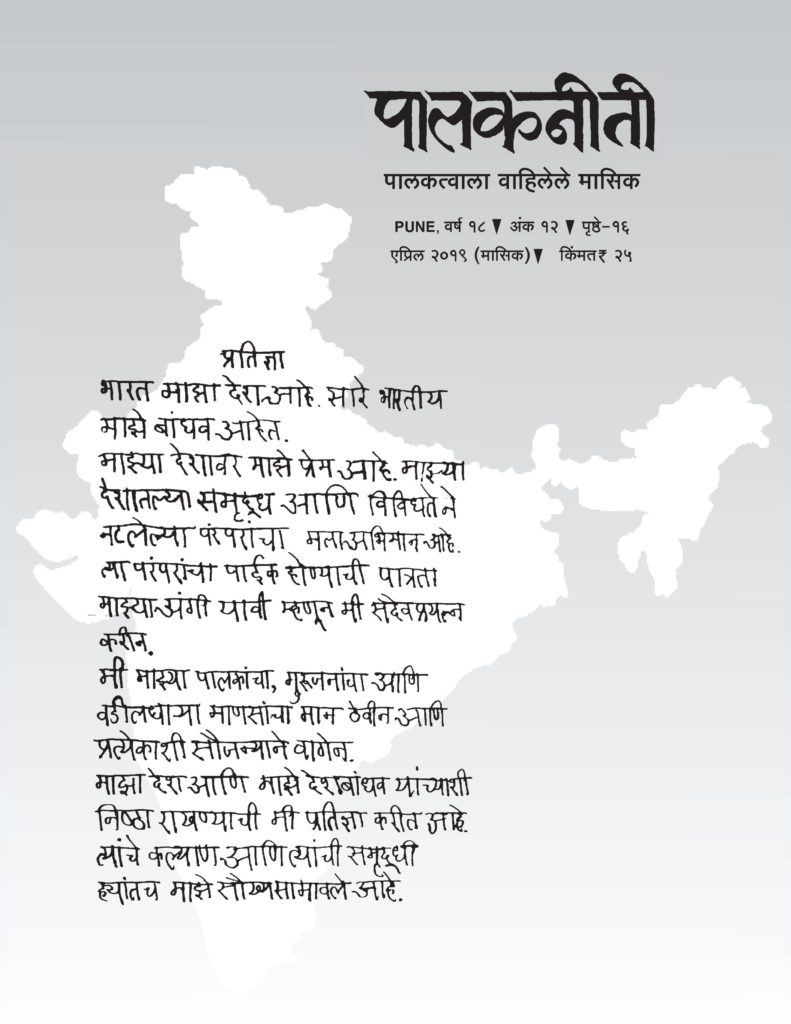 पालकनीती
पालकत्वाला वाहिलेले मासिक
PUNE, वर्ष १८ ▼ अंक १२ ▼ पृष्ठे-१६
एप्रिल २०१९ (मासिक) ▼ किंमत ₹ २५
प्रतिज्ञा
भारत माझा देश आहे. सारे भारतीय
माझे बांधव आहेत.
माझ्या देशावर माझे प्रेम आहे. माझ्या
देशातल्या समृद्ध आणि विविधतेने
नटलेल्या परंपरांचा मला अभिमान आहे.
त्या परंपरांचा पाईक होण्याची पात्रता
माझ्या अंगी यावी म्हणून मी सदैव प्रयत्न
करीन.
मी माझ्या पालकांचा, गुरुजनांचा आणि
वडीलधाऱ्या माणसांचा मान ठेवीन आणि
प्रत्येकाशी सौजन्याने वागेन.
माझा देश आणि माझे देशबांधव यांच्याशी
निष्ठा राखण्याची मी प्रतिज्ञा करीत आहे.
त्यांचे कल्याण आणि त्यांची समृद्धी
ह्यांतच माझे सौख्य सामावले आहे.